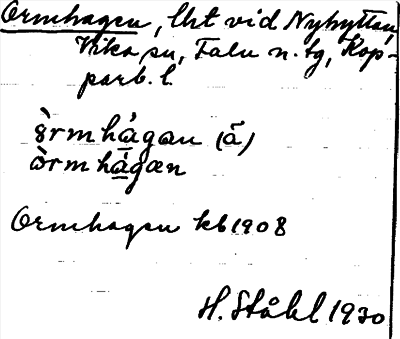 Ormhagen, lht vid Nyhyttan,
Vika sn, Falu n. tg, Kop-
parb. l.
òrmhá̱gan (ā́)
òrmhá̱gæn
Ormhagen kb 1908
H. Ståhl 1930